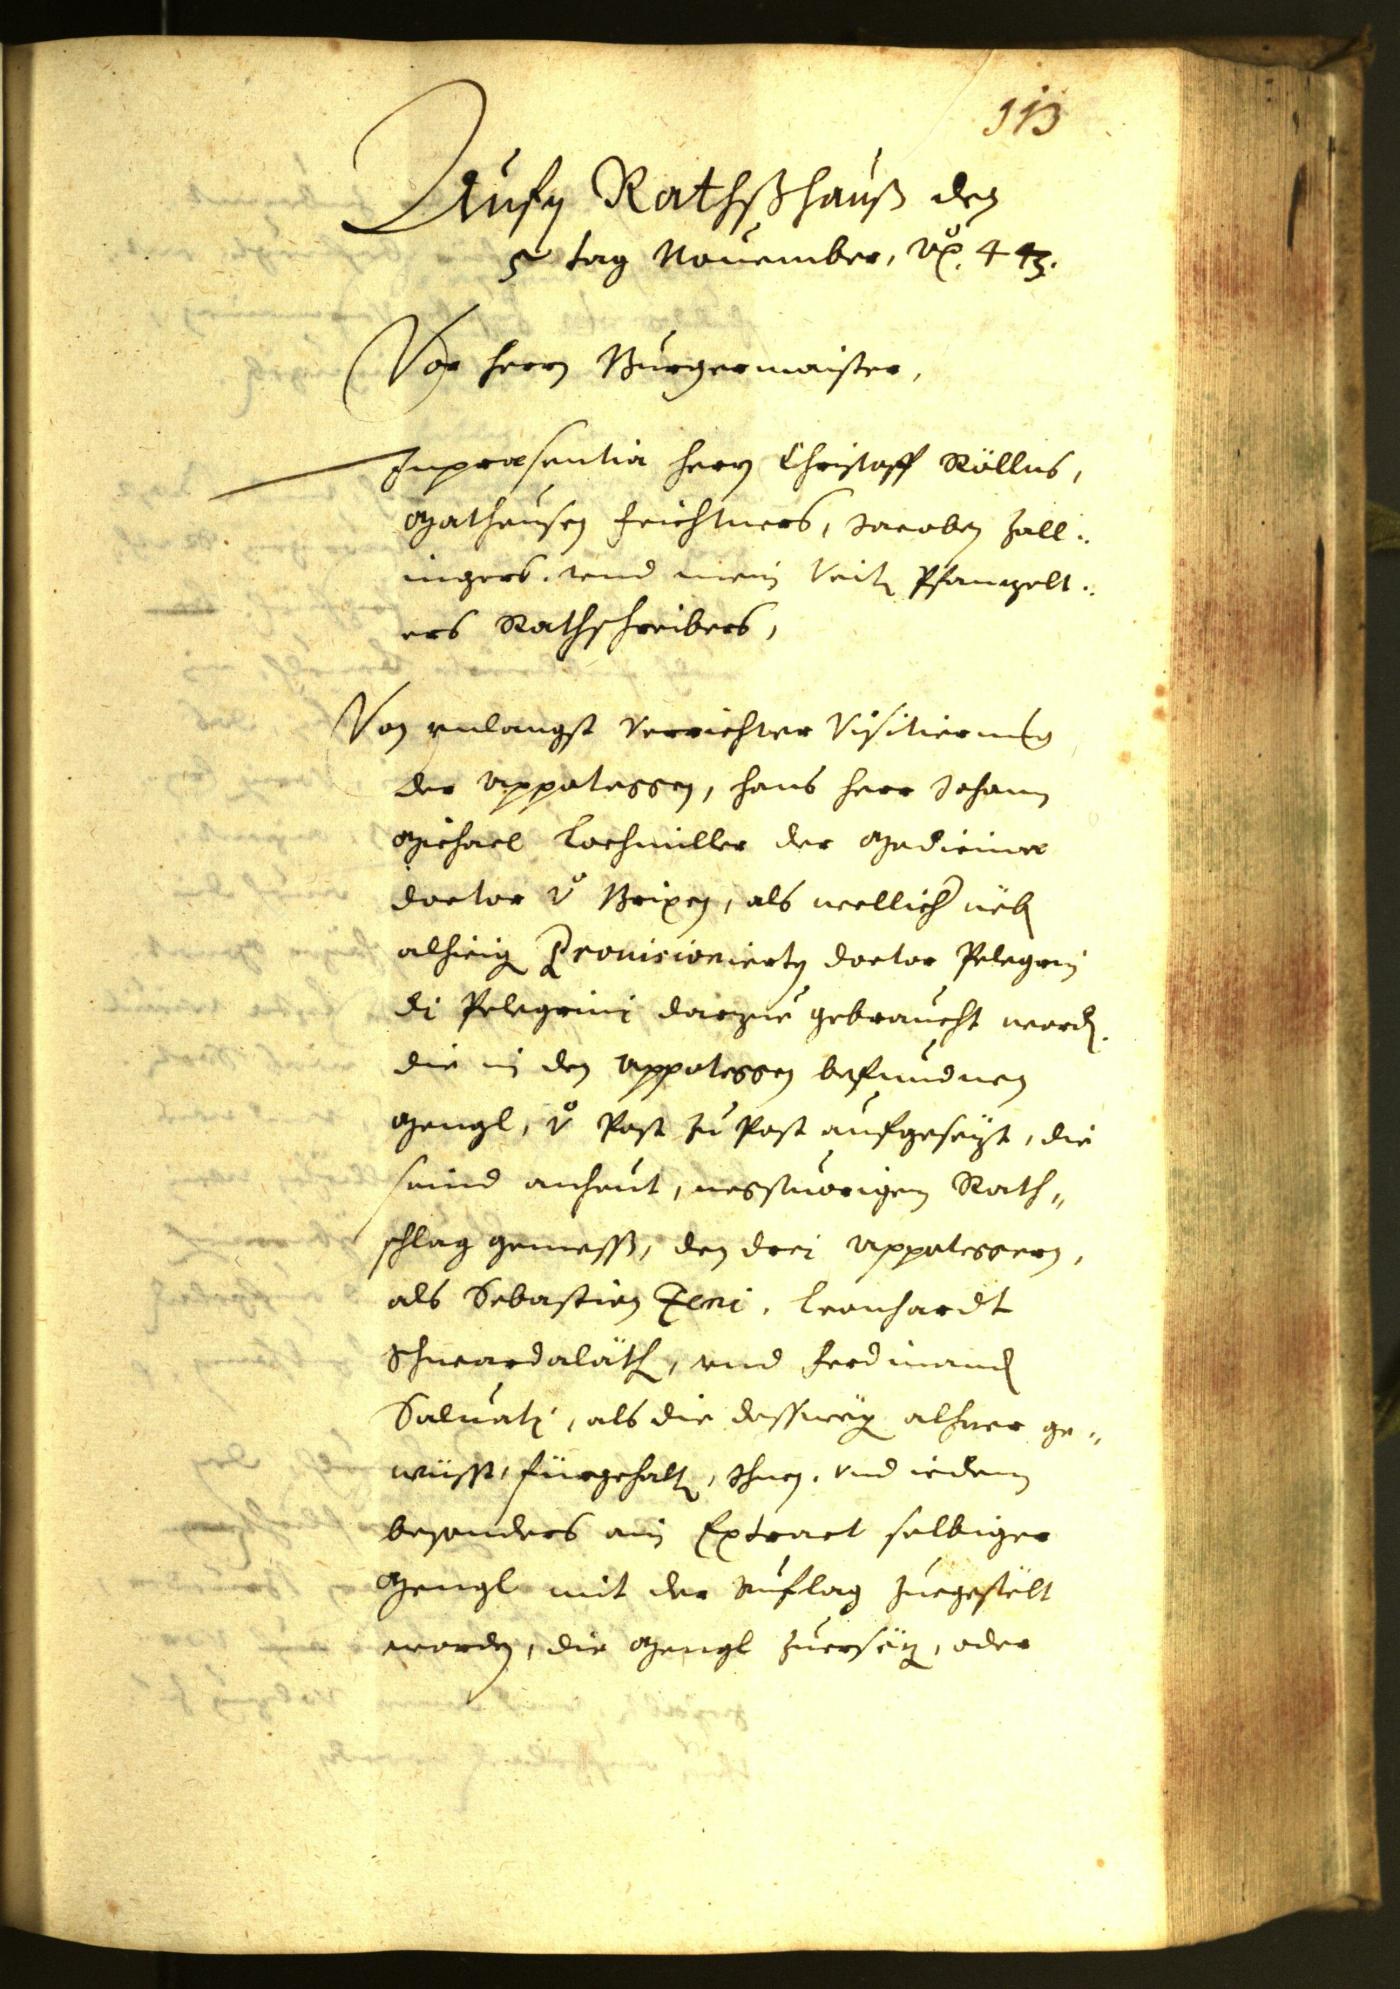 113
Aufn Rathßhauß den
5 tag Nouember, Ao. 443.
Vor herrn Burgermaister,
Inpraesentia herrn Christoff Köllns,
Matheusen Feichtners, Jacoben Zall..
ingers. vnd mein Veitn Pfanzelt..
ers Rathschreibers,
Von vnlangst verrichter Visitierung
der Appotessen, hans herr Johann
Michael Lachmiller der Medicinae
doctor vo Brixen, als wellicher nebn
alhieig Prouisionierten doctor Pelegrin
di Pelegrini darzue gebraucht wordn.
die in den Appotessen befundnen
Mengl, vo Post zu Post aufgesezt, die
seind anheut, nestuorigen Rath„
schlag gemeß, den drei Appotessern,
als Sebastian Zeni, Leonhardt
Schneardaläth, vnd Ferdinand
Saluati, als die desswegn alher ge„
wüsst, fürgehaltn, Ihnen. vnd iedem
besonders ain Extract selbiger
Mengl mit der Auflag zuegestelt
worden, die Mengl zuersezn, oder